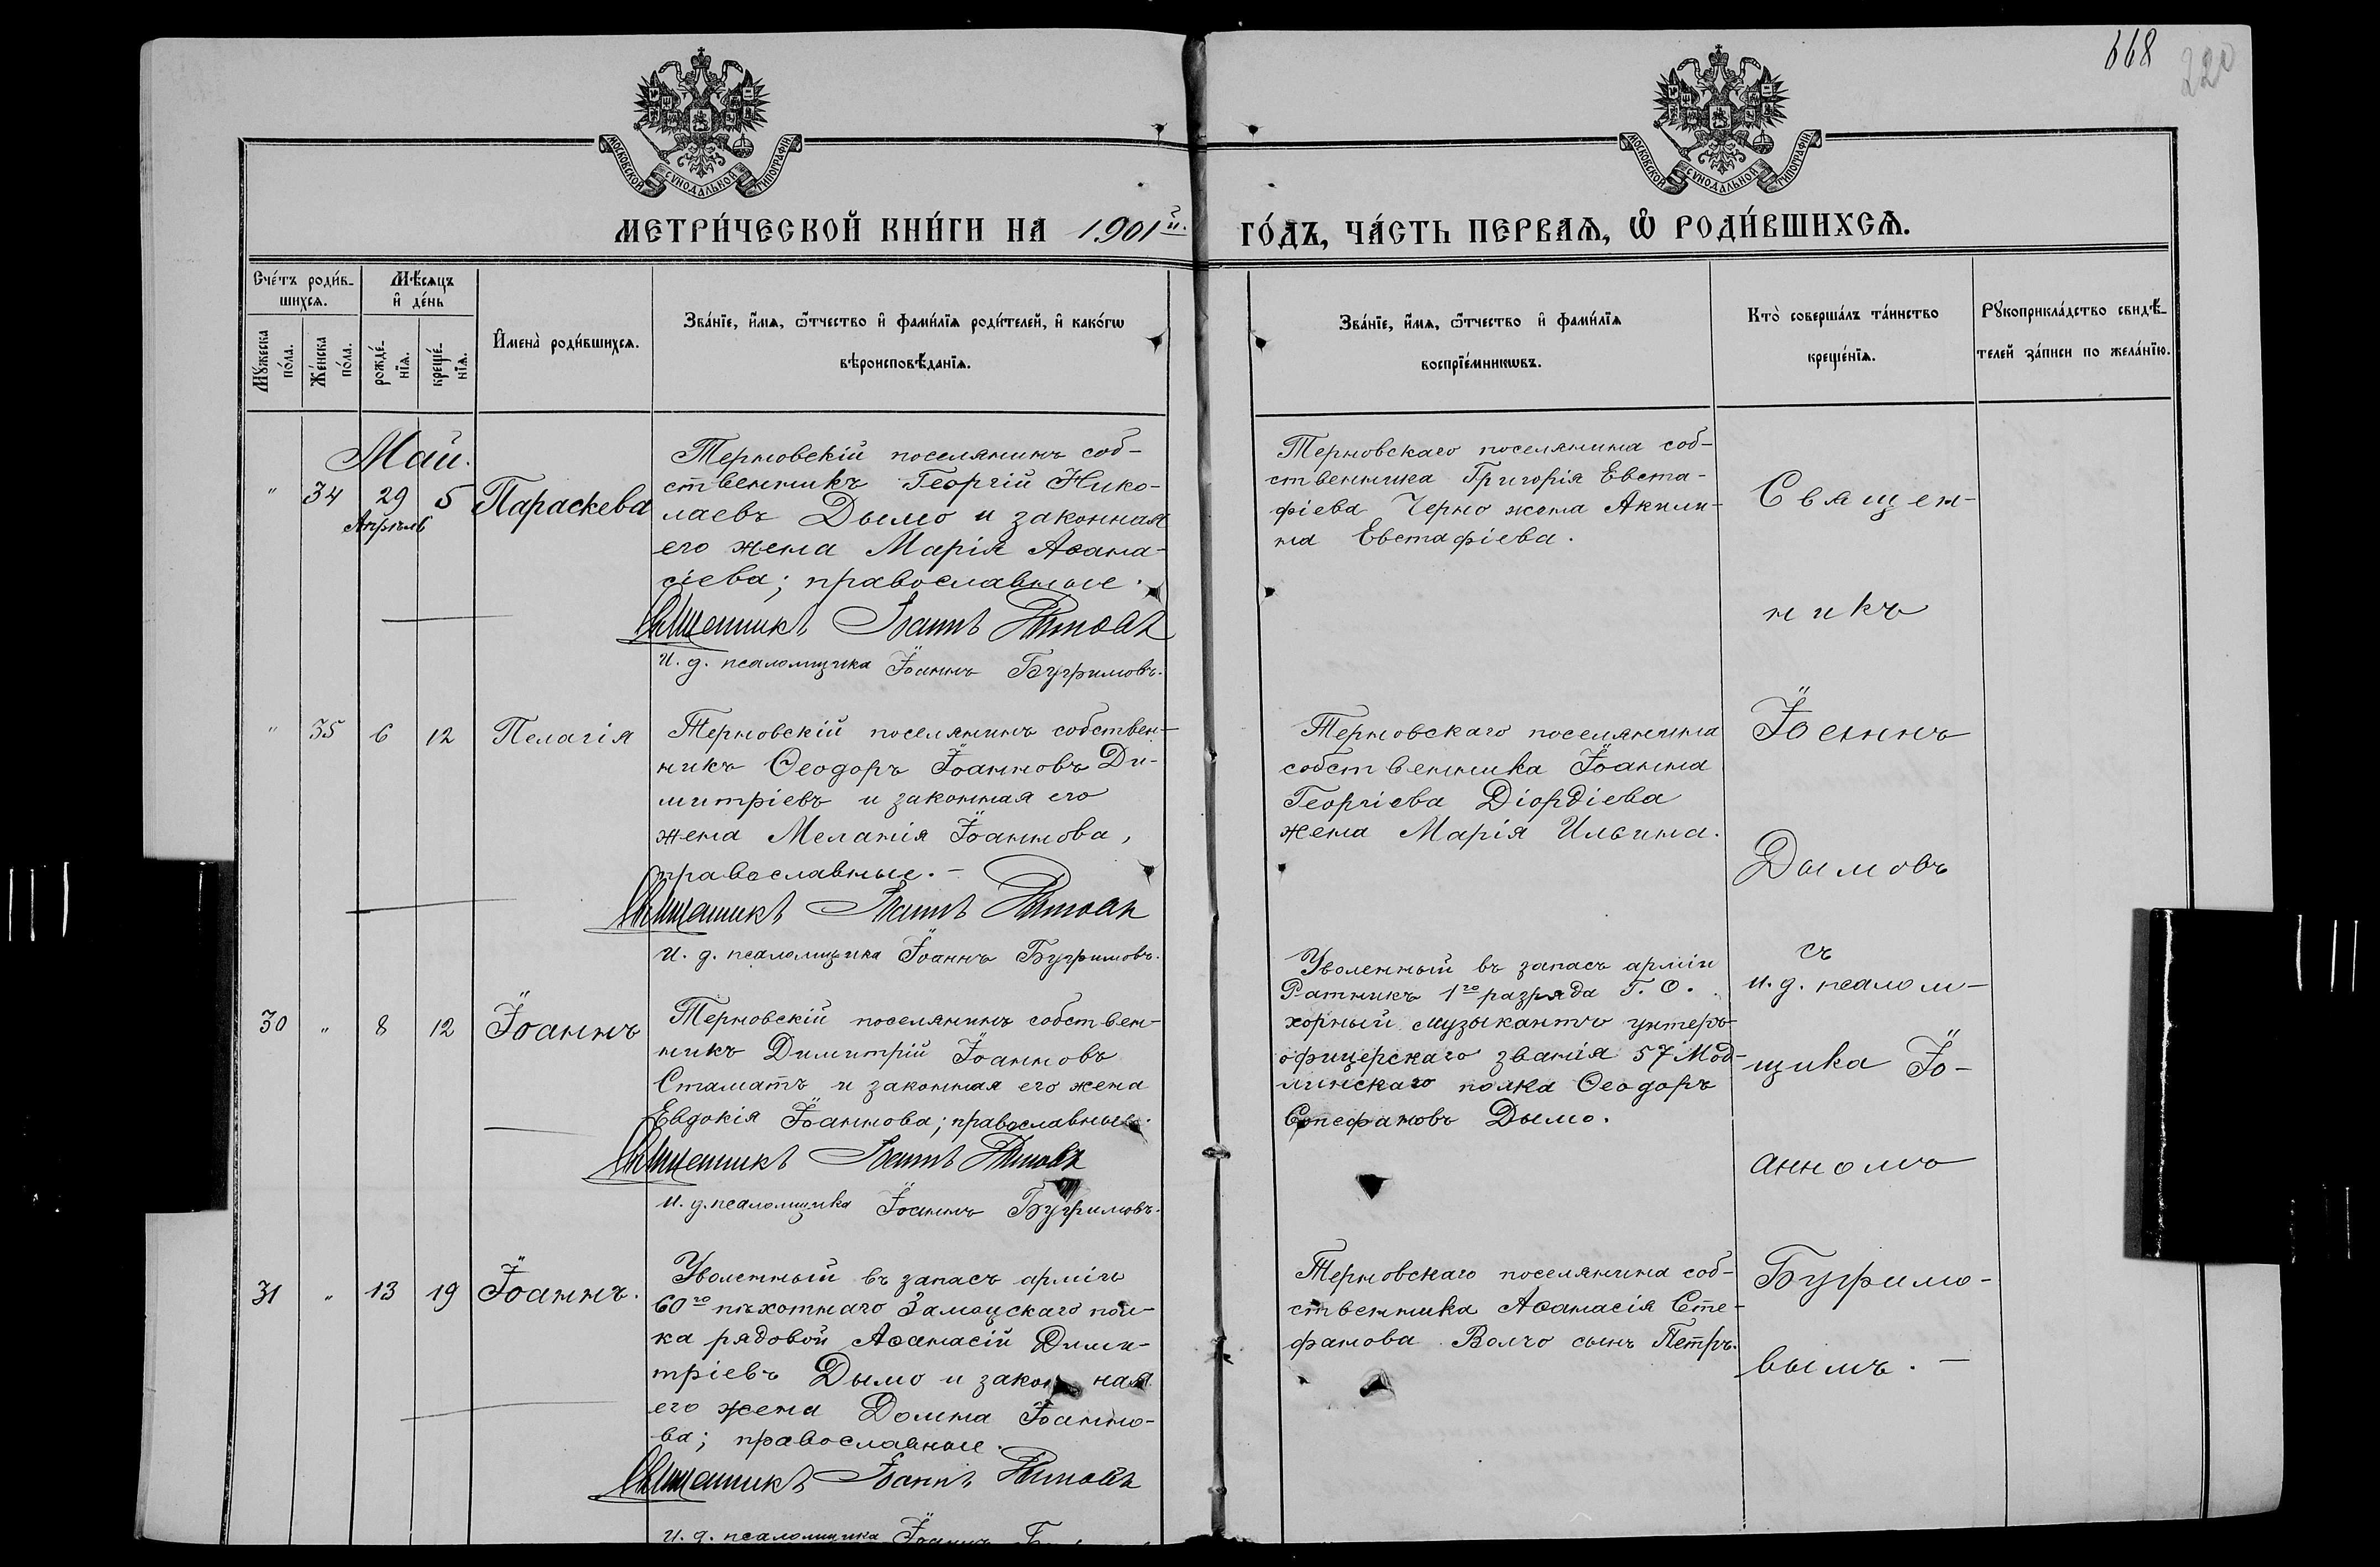 668
220
МОСКОВСКОЙ СѴНОДАЛЬНОЙ ТИПОГРАФІИ
МОСКОВСКОЙ СѴНОДАЛЬНОЙ ТИПОГРАФІИ
МЕТРИ́ЧЕСКОЙ КНИ́ГИ НА 1901й.
ГО́ДЪ, ЧА́СТЬ ПЕРВАѦ, Ѽ РОДИ́ВШИХСѦ.
Сче́тъ роди́в-
шихсѧ.
Мꙋ́жеска по́ла.
Же́нска по́ла.
Мѣ́сѧцъ
и҆ де́нь
рожде́-нїѧ.
креще́-нїѧ.
И҆мена̀ роди́вшихсѧ.
Зва́нїе, и҆́мѧ, ѻ҆́тчество и҆ фами́лїѧ роди́телей, и҆ како́гѡ
вѣроисповѣ́данїѧ.
Зва́нїе, и҆́мѧ, ѻ҆́тчество и҆ фами́лїѧ
воспрїе́мникѡвъ.
Кто̀ соверша́лъ та́инство
креще́нїѧ.
Рꙋкоприкла́дство свидѣ́-
телей за́писи по жела́нїю.
Май.
" 34 29 5 Параскева
Апрѣль
Терновскій поселянинъ соб-
ственникъ Георгій Нико-
лаевъ Дымо и законная
его жена Марія Аѳана-
сіева; православные.
Священникъ Іоаннъ Дымовъ
И. д. псаломщика Іоаннъ Бугримовъ.
Терновскаго поселянина соб-
ственника Григорія Евста-
фіева Черно жена Акили-
на Евстафіева.
" 35 6 12 Пелагія
Терновскій поселянинъ собствен-
никъ Ѳеодоръ Іоанновъ Ди-
митріевъ и законная его
жена Меланія Іоаннова,
православные. -
Священникъ Іоаннъ Дымовъ
И. д. псаломщика Іоаннъ Бугримовъ.
Терновскаго поселянина
собственника Іоанна
Георгіева Діордіева
жена Марія Ильина.
30 " 8 12 Іоаннъ
Терновскій поселянинъ собствен-
никъ Димитрій Іоанновъ
Стаматъ и законная его жена
Евдокія Іоаннова; православные.
Священникъ Іоаннъ Дымовъ
И. д. псаломщика Іоаннъ Бугримовъ.
Уволенный въ запасъ арміи
Ратникъ 1го разряда Г. О.
хорный музыкантъ унтеръ-
офицерскаго званія 57 Мод-
линскаго полка Ѳеодоръ
Стефановъ Дымо.
31 " 13 19 Іоаннъ.
Уволенный въ запасъ арміи
60го пѣхотнаго Замоцскаго пол-
ка рядовой Аѳанасій Дими-
тріевъ Дымо и законная
его жена Домна Іоанно-
ва; православные.
Священникъ Іоаннъ Дымовъ
И. д. псаломщика Іоаннъ
Терновскаго поселянина соб-
ственника Аѳанасія Сте-
фанова Волчо сынъ Петръ.
Священ-
никъ
Іоаннъ
Дымовъ
съ
и. д. псалом-
щика Іо-
анномъ
Бугримо-
вымъ. -